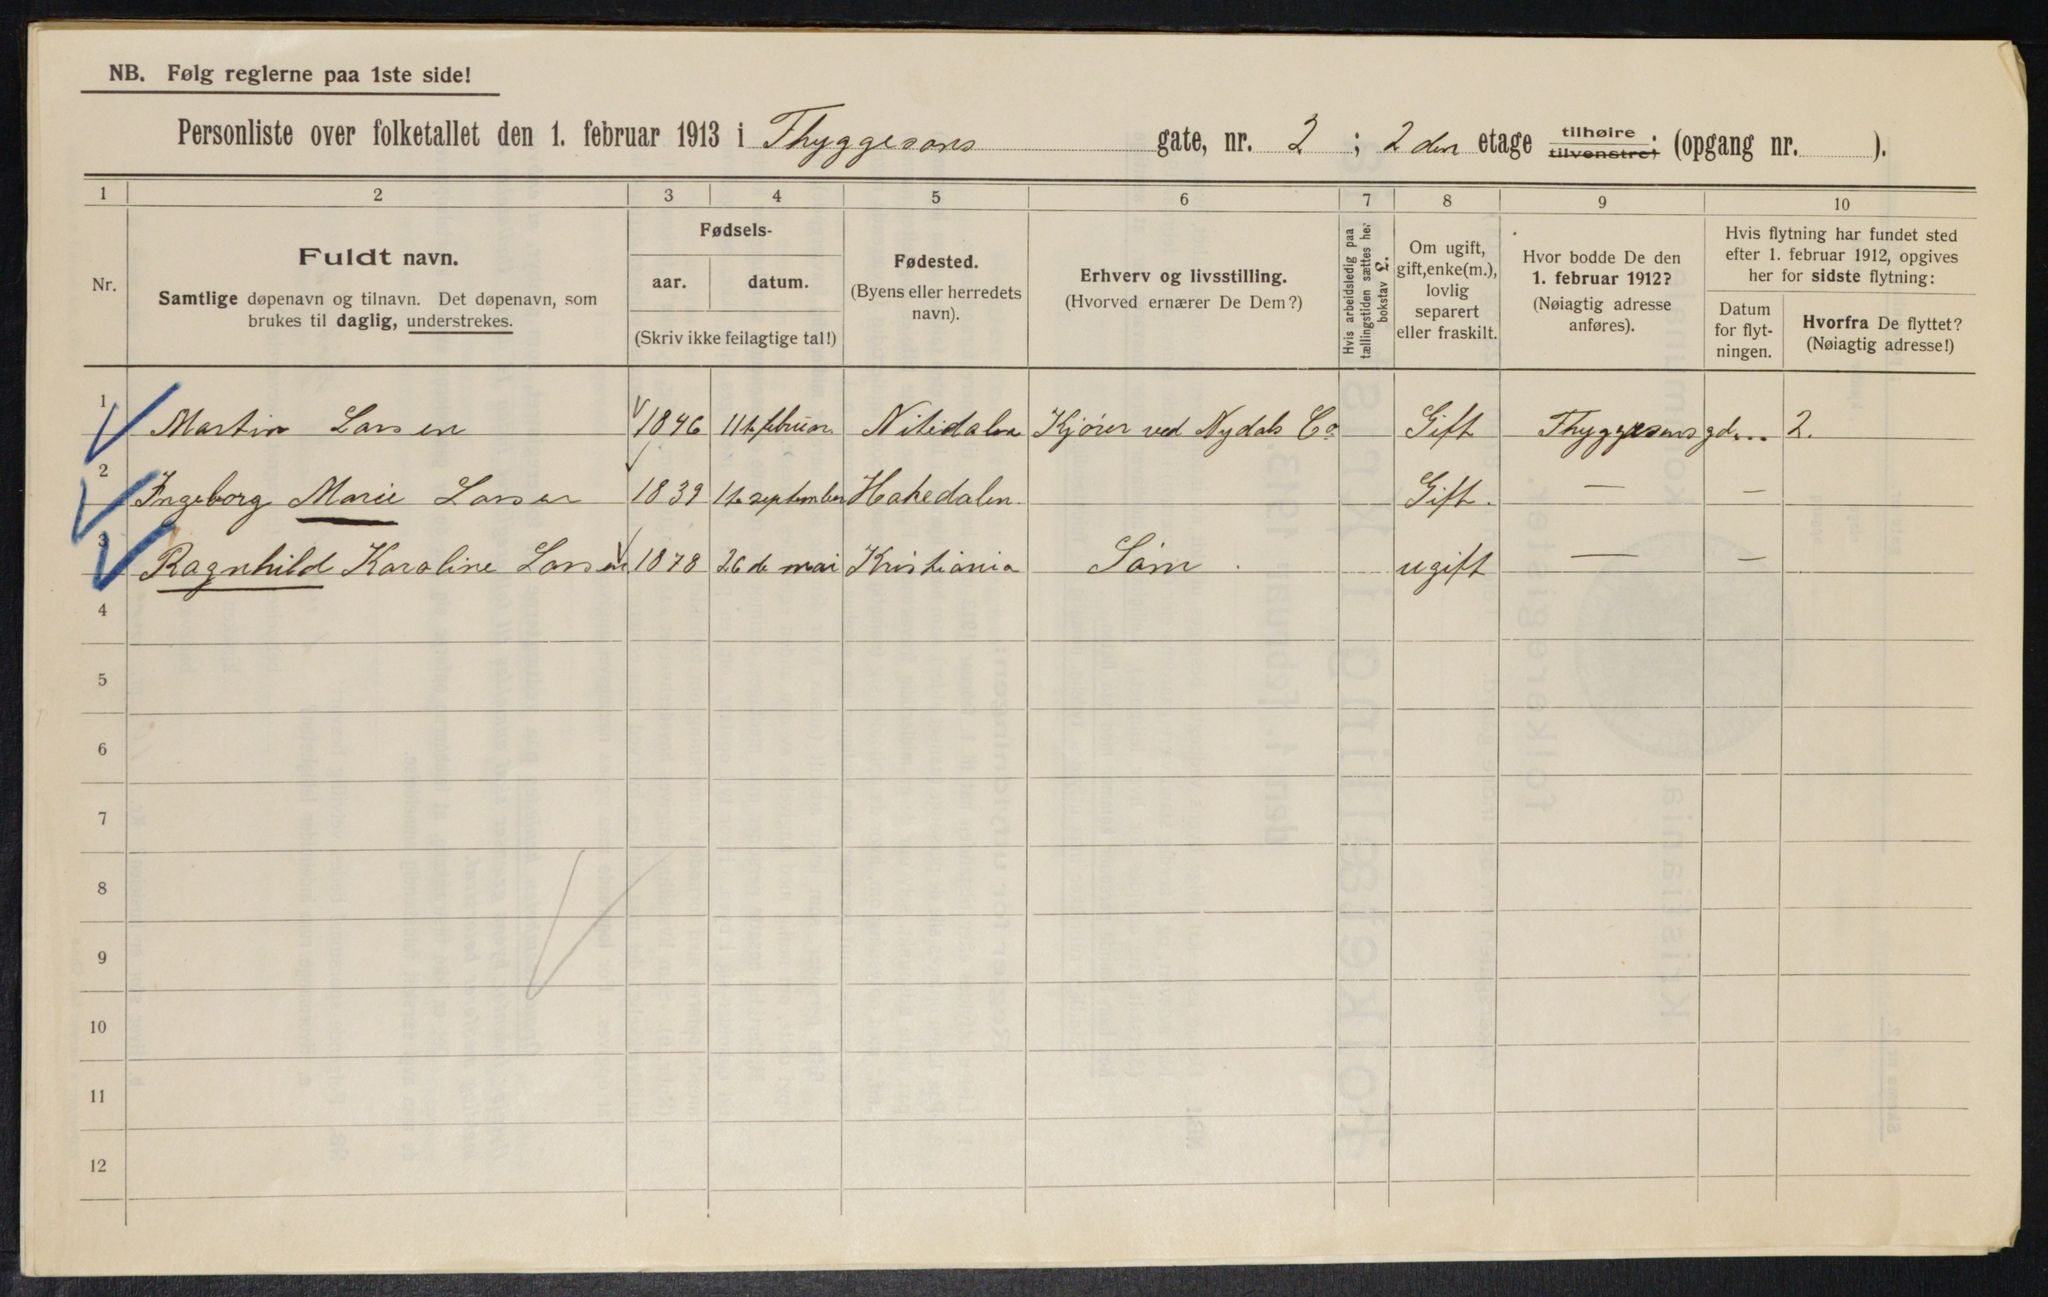 NB. Følg reglerne paa 1ste side!
Personliste over folketallet den 1. februar 1913 i Thyggesons gate, nr. 2 ; 2den etage tilhøire tilvenstre; (opgang nr. ).
1 2 3 4 5 6 7 8 9 10
Nr.
Fuldt navn.
Samtlige døpenavn og tilnavn. Det døpenavn, som
brukes til daglig, understrekes.
Fødsels-
aar. datum.
(Skriv ikke feilagtige tal!)
Fødested.
(Byens eller herredets
navn).
Erhverv og livsstilling.
(Hvorved ernærer De Dem?)
Hvis arbeidsledig paa
tællingstiden sættes her
bokstav L.
Om ugift,
gift, enke(m.),
lovlig
separert
eller fraskilt.
Hvor bodde De den
1. februar 1912?
(Nøiagtig adresse
anføres).
Hvis flytning har fundet sted
efter 1. februar 1912, opgives
her for sidste flytning:
Datum
for flyt-
ningen.
Hvorfra De flyttet?
(Nøiagtig adresse!)
1 Martin Larsen 1846 11te februar Nitedalen Kjører ved Nydals Co Gift Thyggesensgd... 2.
2 Ingeborg Marie Larsen 1839 1te september Hakedalen Gift. — —
3 Ragnhild Karoline Larsen 1878 26de mai Kristiania Søm ugift — —
4
5
6
7
8
9
10
11
12